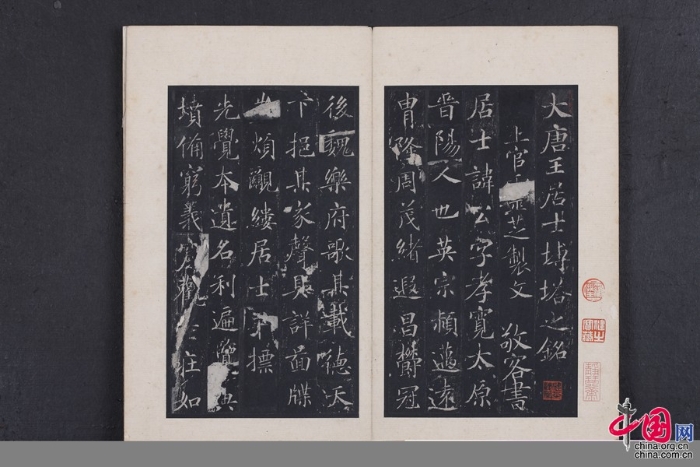 大唐王居士塼塔之銘
上官靈芝製文 敬客書
居士諱公字孝寬太原
晉陽人也英宗穎邁遠
胄隆周茂緒遐昌鬱冠
後魏樂府歌其載德天
下挹其家聲具詳圖牒
煩觀縷居士標
光覺本遺名利遍覽典
墳備窮義觀老莊如
中国网
china.org.cn
china.com.cn